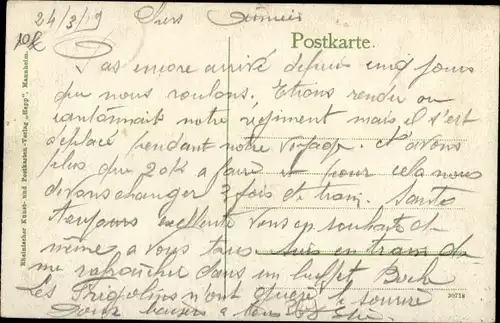 24/3/19 Chers Aimées
Postkarte.
Pas encore arrivé depuis cinq jours
que nous roulons. Etions rendu ou
cantonnait notre régiment mais il s'est
déplacé pendant notre voyage. N'avons
plus que 20 K a faire et pour cela nous
devons changer 3 fois de train. Santé
toujours excellente vous en souhait de
même a vous tous suis en train de
me rafraichir dans un buffet Boch
Les Frigolins n'ont guère le sourire
Doux baisers a tous
Rheinischer Kunst- und Postkarten-Verlag „Hepp", Mannheim.